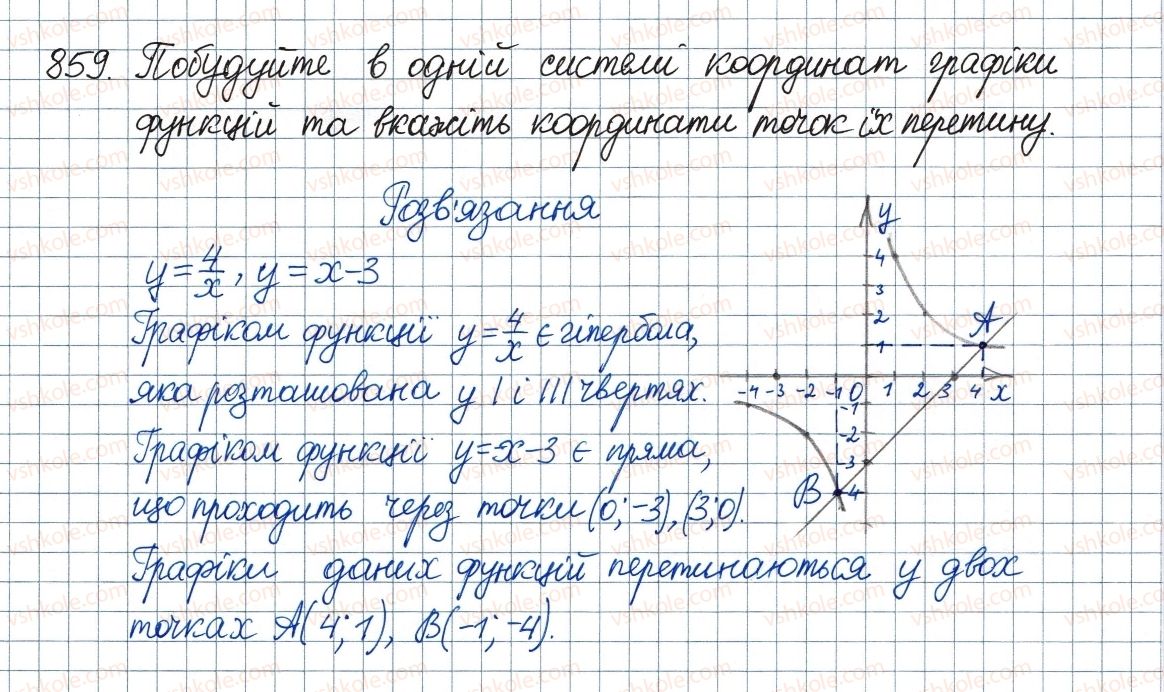 859. Побудуйте в одній системі координат графіки
функцій та вкажіть координати точок їх перетину.
Розв'язання
y = 4/x, y = x - 3
Графіком функції y = 4/x є гіпербола,
яка розташована у I і III чвертях.
Графіком функції y = x - 3 є пряма,
що проходить через точки (0; -3), (3; 0).
Графіки даних функцій перетинаються у двох
точках A(4; 1), B(-1; -4).
y
4
3
2
A
1
-4 -3 -2 -1 0 1 2 3 4 x
-1
-2
-3
B -4
vshkole.com